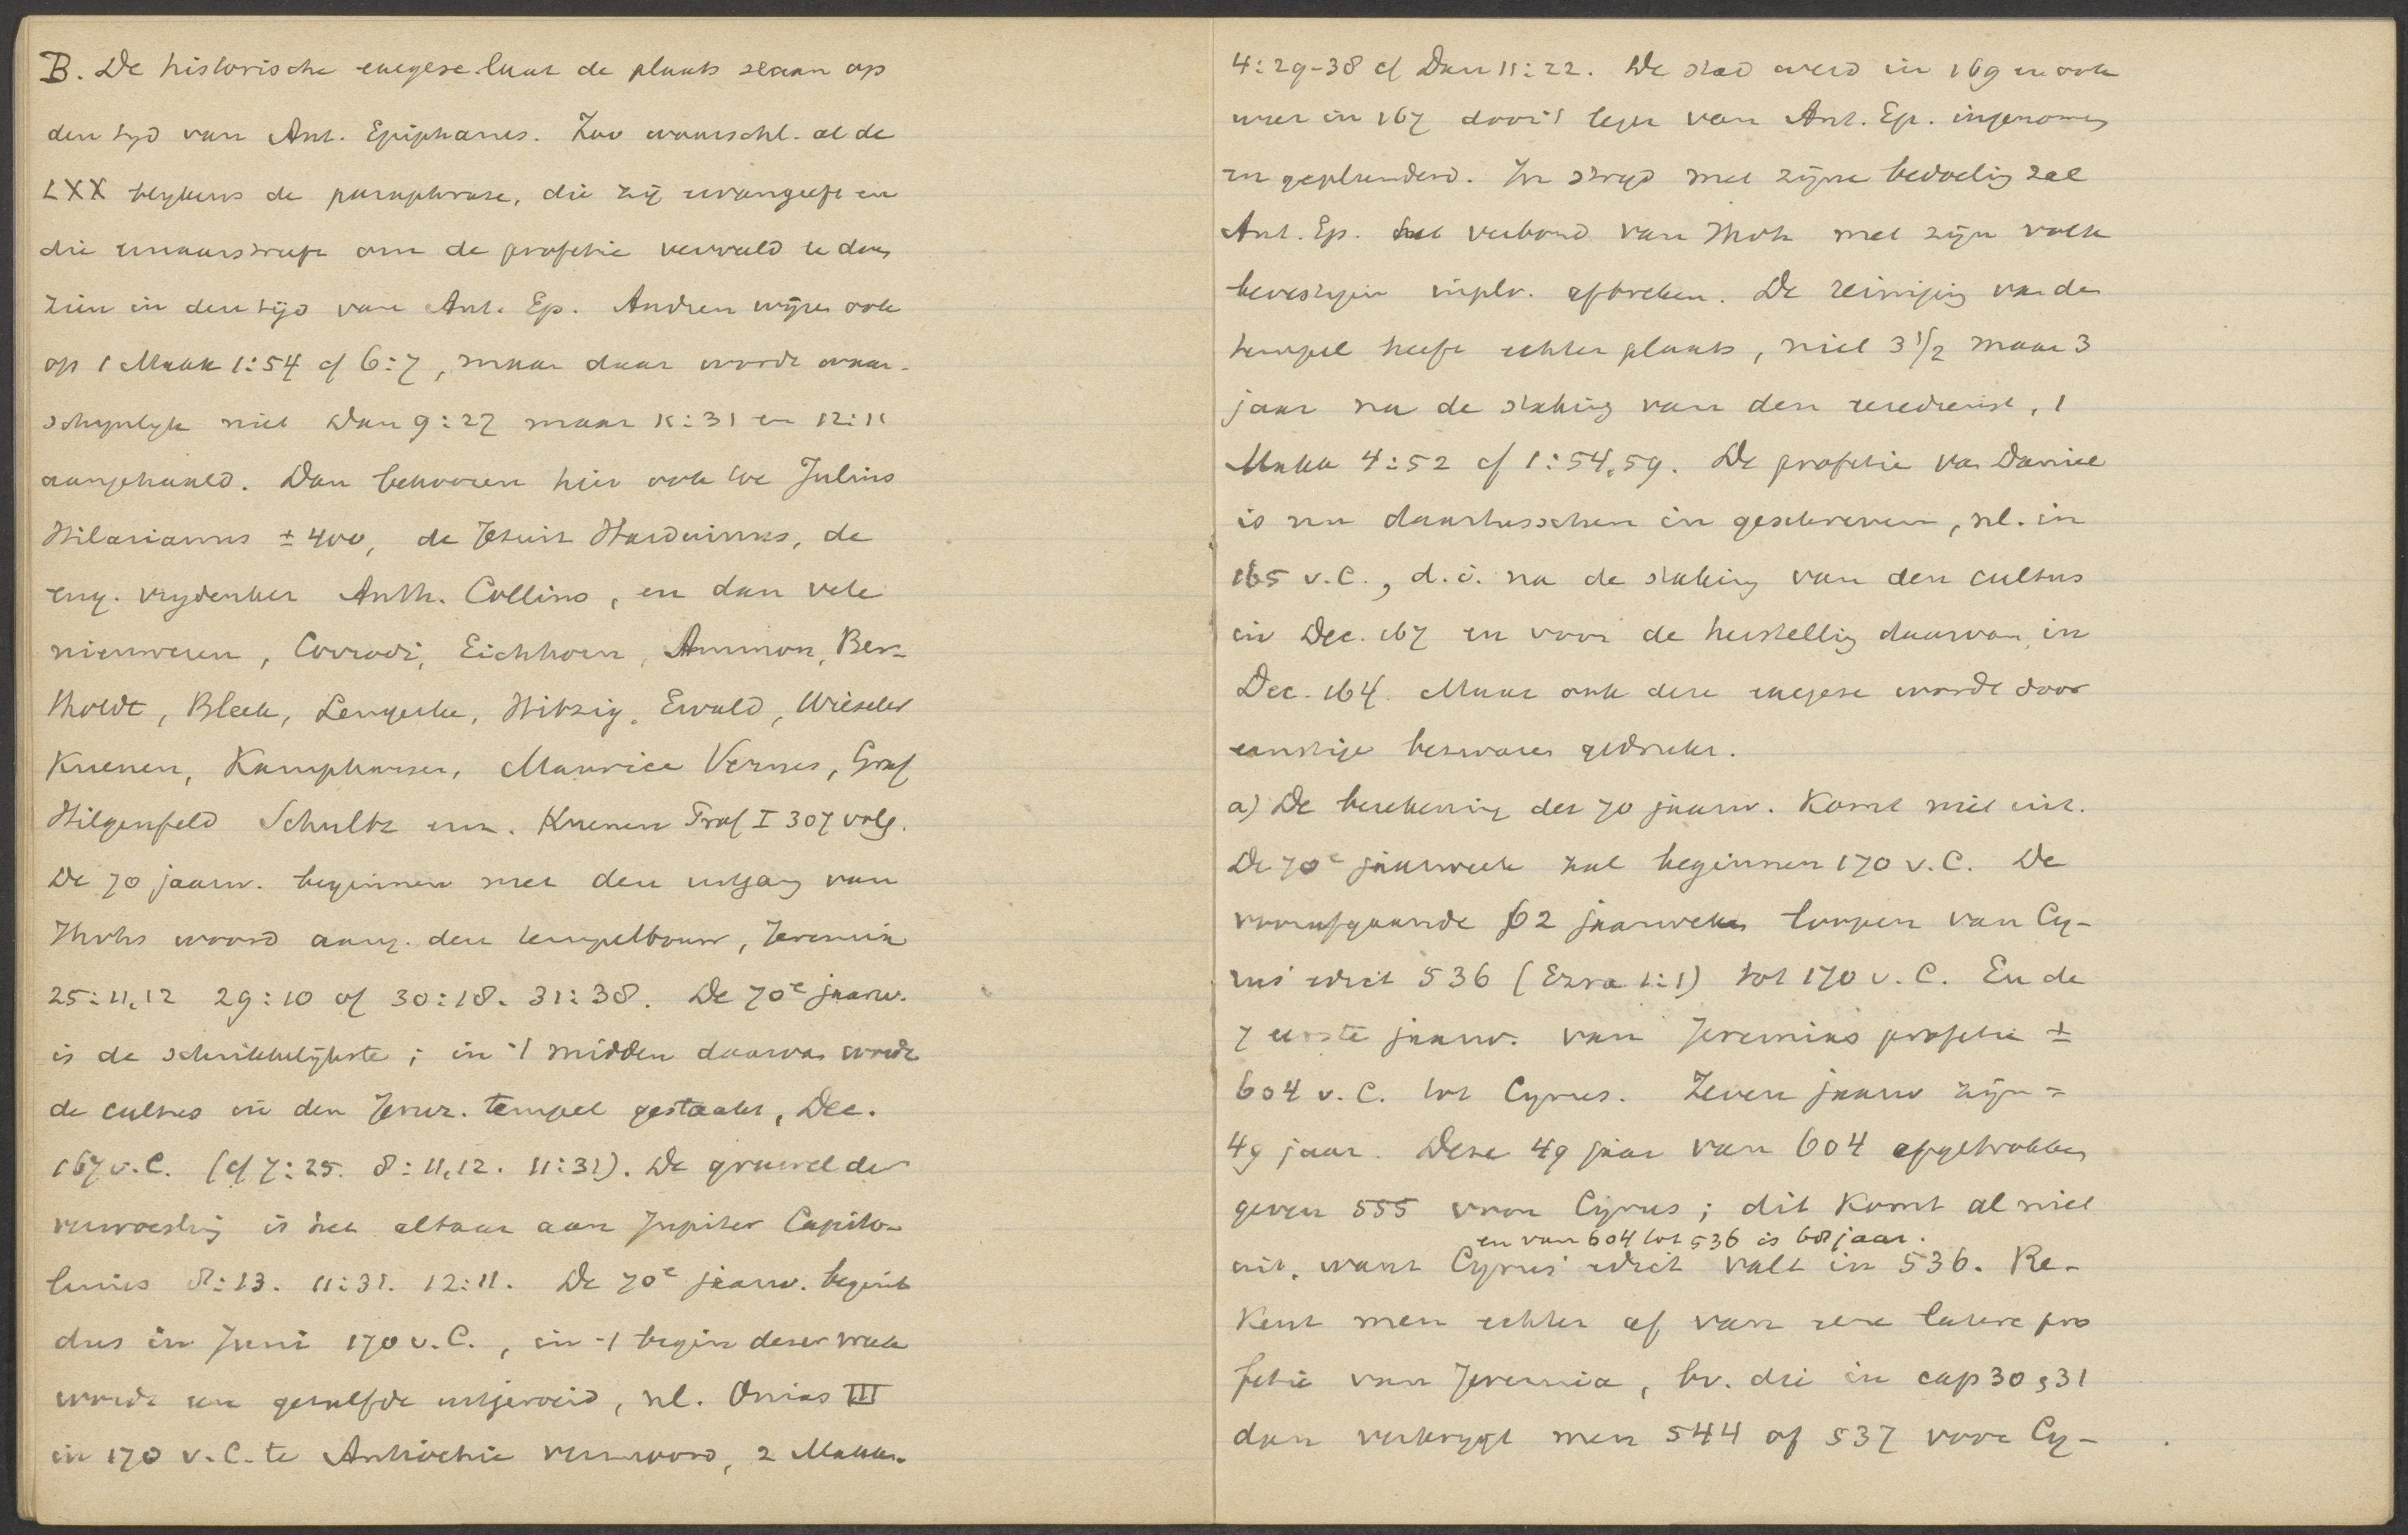 B. De historische exegese laat de plaats slaan op
den tijd van Ant. Epiphanes. Zoo waarschl. al de
LXX blijkens de paraphrase, die zij ervan geeft en
die ernaar streeft om de profetie vervuld te doen
zien in den tijd van Ant. Ep. Andren wijzen ook
op 1 Makk 1:54 cf 6:7, maar daar wordt waar-
schijnlijk niet Dan 9:27 maar 11:31 en 12:11
aangehaald. Dan behooren hier ook toe Julius
Hilarianus ± 400, de Jesuit Harduinus, de
eng. vrijdenker Anth. Collins, en dan vele
nieuweren, Corrodi, Eichhorn, Ammon, Ber-
tholdt, Bleek, Lengerke, Hitzig, Ewald, Wieseler
Kuenen, Kamphausen, Maurice Vernes, Graf
Hilgenfeld Schultz enz. Kuenen Prof I 307 volg.
De 70 jaarw. beginnen met den uitgang van
Jhvhs woord aang. den tempelbouw, Jeremia
25:11,12 29:10 of 30:18. 31:38. De 70e jaarw.
is de schrikkelijkste; in 't midden daarvan wordt
de cultus in den Jeruz. tempel gestaakt, Dec.
167 v.C. (cf 7:25. 8:11,12. 11:31). De gruwel der
verwoesting is het altaar aan Jupiter Capito-
linus 8:13. 11:31. 12:11. De 70e jaarw. begint
dus in Juni 170 v.C., in 't begin dezer week
wordt een gezalfde uitgeroeid, nl. Onias III
in 170 v.C. te Antiochie vermoord, 2 Makk.
4:29-38 cf Dan 11:22. De stad werd in 169 en ook
weer in 167 door 't leger van Ant. Ep. ingenomen
en geplunderd. In strijd met zijne bedoeling zal
Ant. Ep. het verbond van Jhvh met zijn volk
bevestigen in pl. v. afbreken. De reiniging van den
tempel heeft echter plaats, niet 3 1/2 maar 3
jaar na de staking van den eeredienst, 1
Makk 4:52 cf 1:54,59. De profetie van Daniel
is nu daartusschen in geschreven, nl. in
165 v.C., d.i. na de staking van den cultus
in Dec. 167 en voor de herstelling daarvan in
Dec. 164. Maar ook deze exegese wordt door
ernstige bezwaren gedrukt.
a) De berekening der 70 jaarw. komt niet uit.
De 70e jaarweek zal beginnen 170 v.C. De
voorafgaande 62 jaarweken loopen van Cy-
rus' edict 536 (Ezra 1:1) tot 170 v.C. En de
7 eerste jaarw. van Jeremias profetie ±
604 v.C. tot Cyrus. Zeven jaarw zijn =
49 jaar. Deze 49 jaar van 604 afgetrokken
geven 555 voor Cyrus; dit komt al niet
en van 604 tot 536 is 68 jaar.
uit, want Cyrus' edict valt in 536. Re-
kent men echter af van eene latere pro
fetie van Jeremia, bv. die in cap 30, 31
dan verkrijgt men 544 of 537 voor Cy-